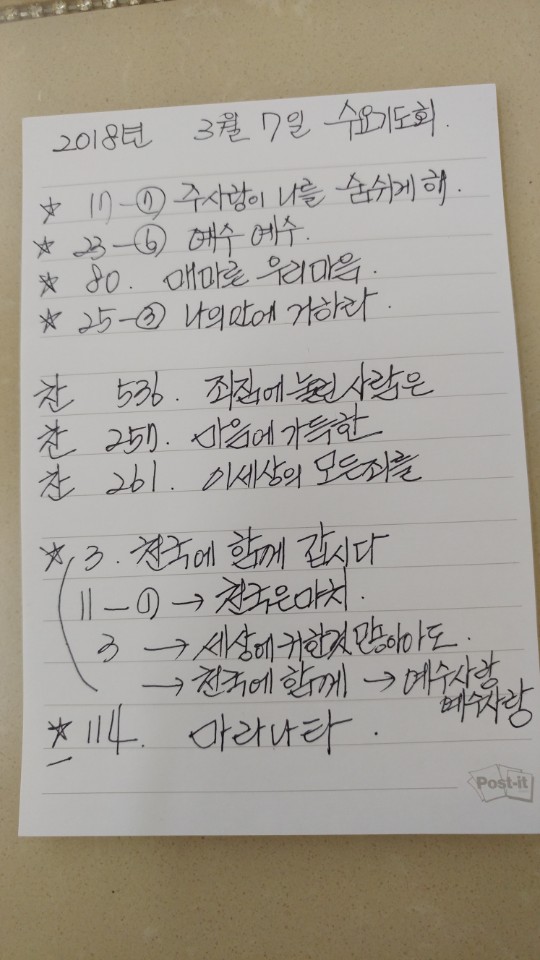 2018년 3월 7일 수요기도회.
☆ 17-⑦ 주사랑이 나를 숨쉬게 해.
☆ 23-⑥ 예수 예수.
☆ 80. 매마른 우리마음.
☆ 25-③ 나의안에 거하라.
찬 536. 죄짐에 눌린 사람은
찬 257. 마음에 가득한
찬 261. 이세상의 모든죄를
☆ 3. 천국에 함께 갑시다
11-① → 천국은마치.
3 → 세상에 귀한것 많아도.
→ 천국에 함께 → 예수사랑
예수사랑
☆ 114. 마라나타.
Post-it